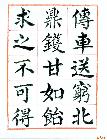 傳車送窮北
鼎鑊甘如飴
求之不可得